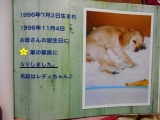 1996年7月2日生まれ
1996年11月4日
お母さんの誕生日に
家の家族に
なりました。
名前はレディちゃん♪